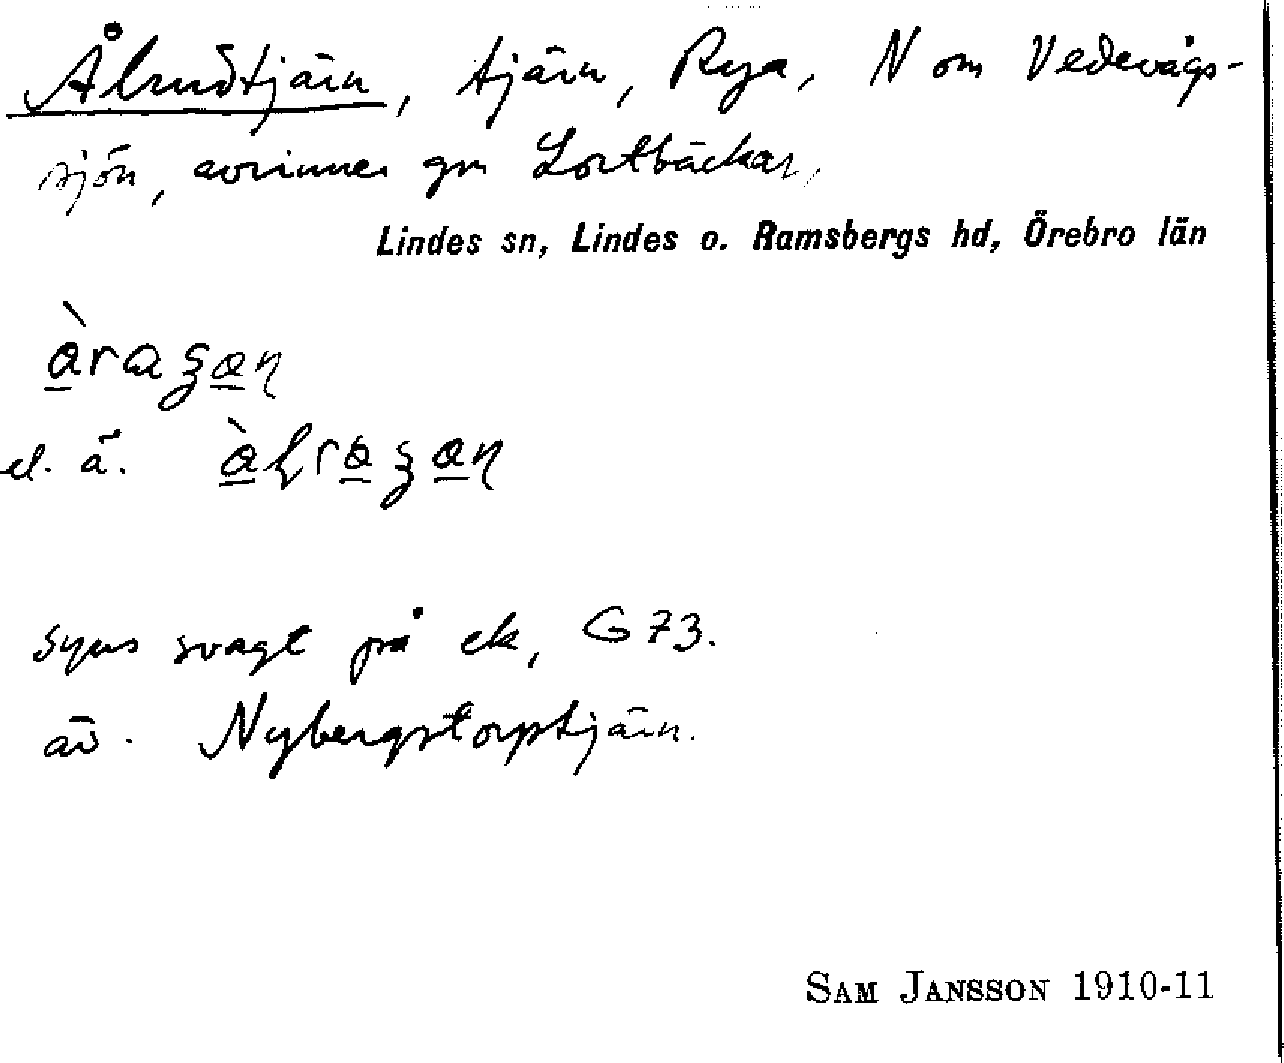 tjärn, Rya, N om Vedevågs-
sjön, avrinner gm Lortbäcken,
Lindes sn, Lindes o. Ramsbergs hd, Örebro län
el. ä.
syns svagt på ek, G 73.
äv. Nybergstorptjärn.
SAM JANSSON 1910-11